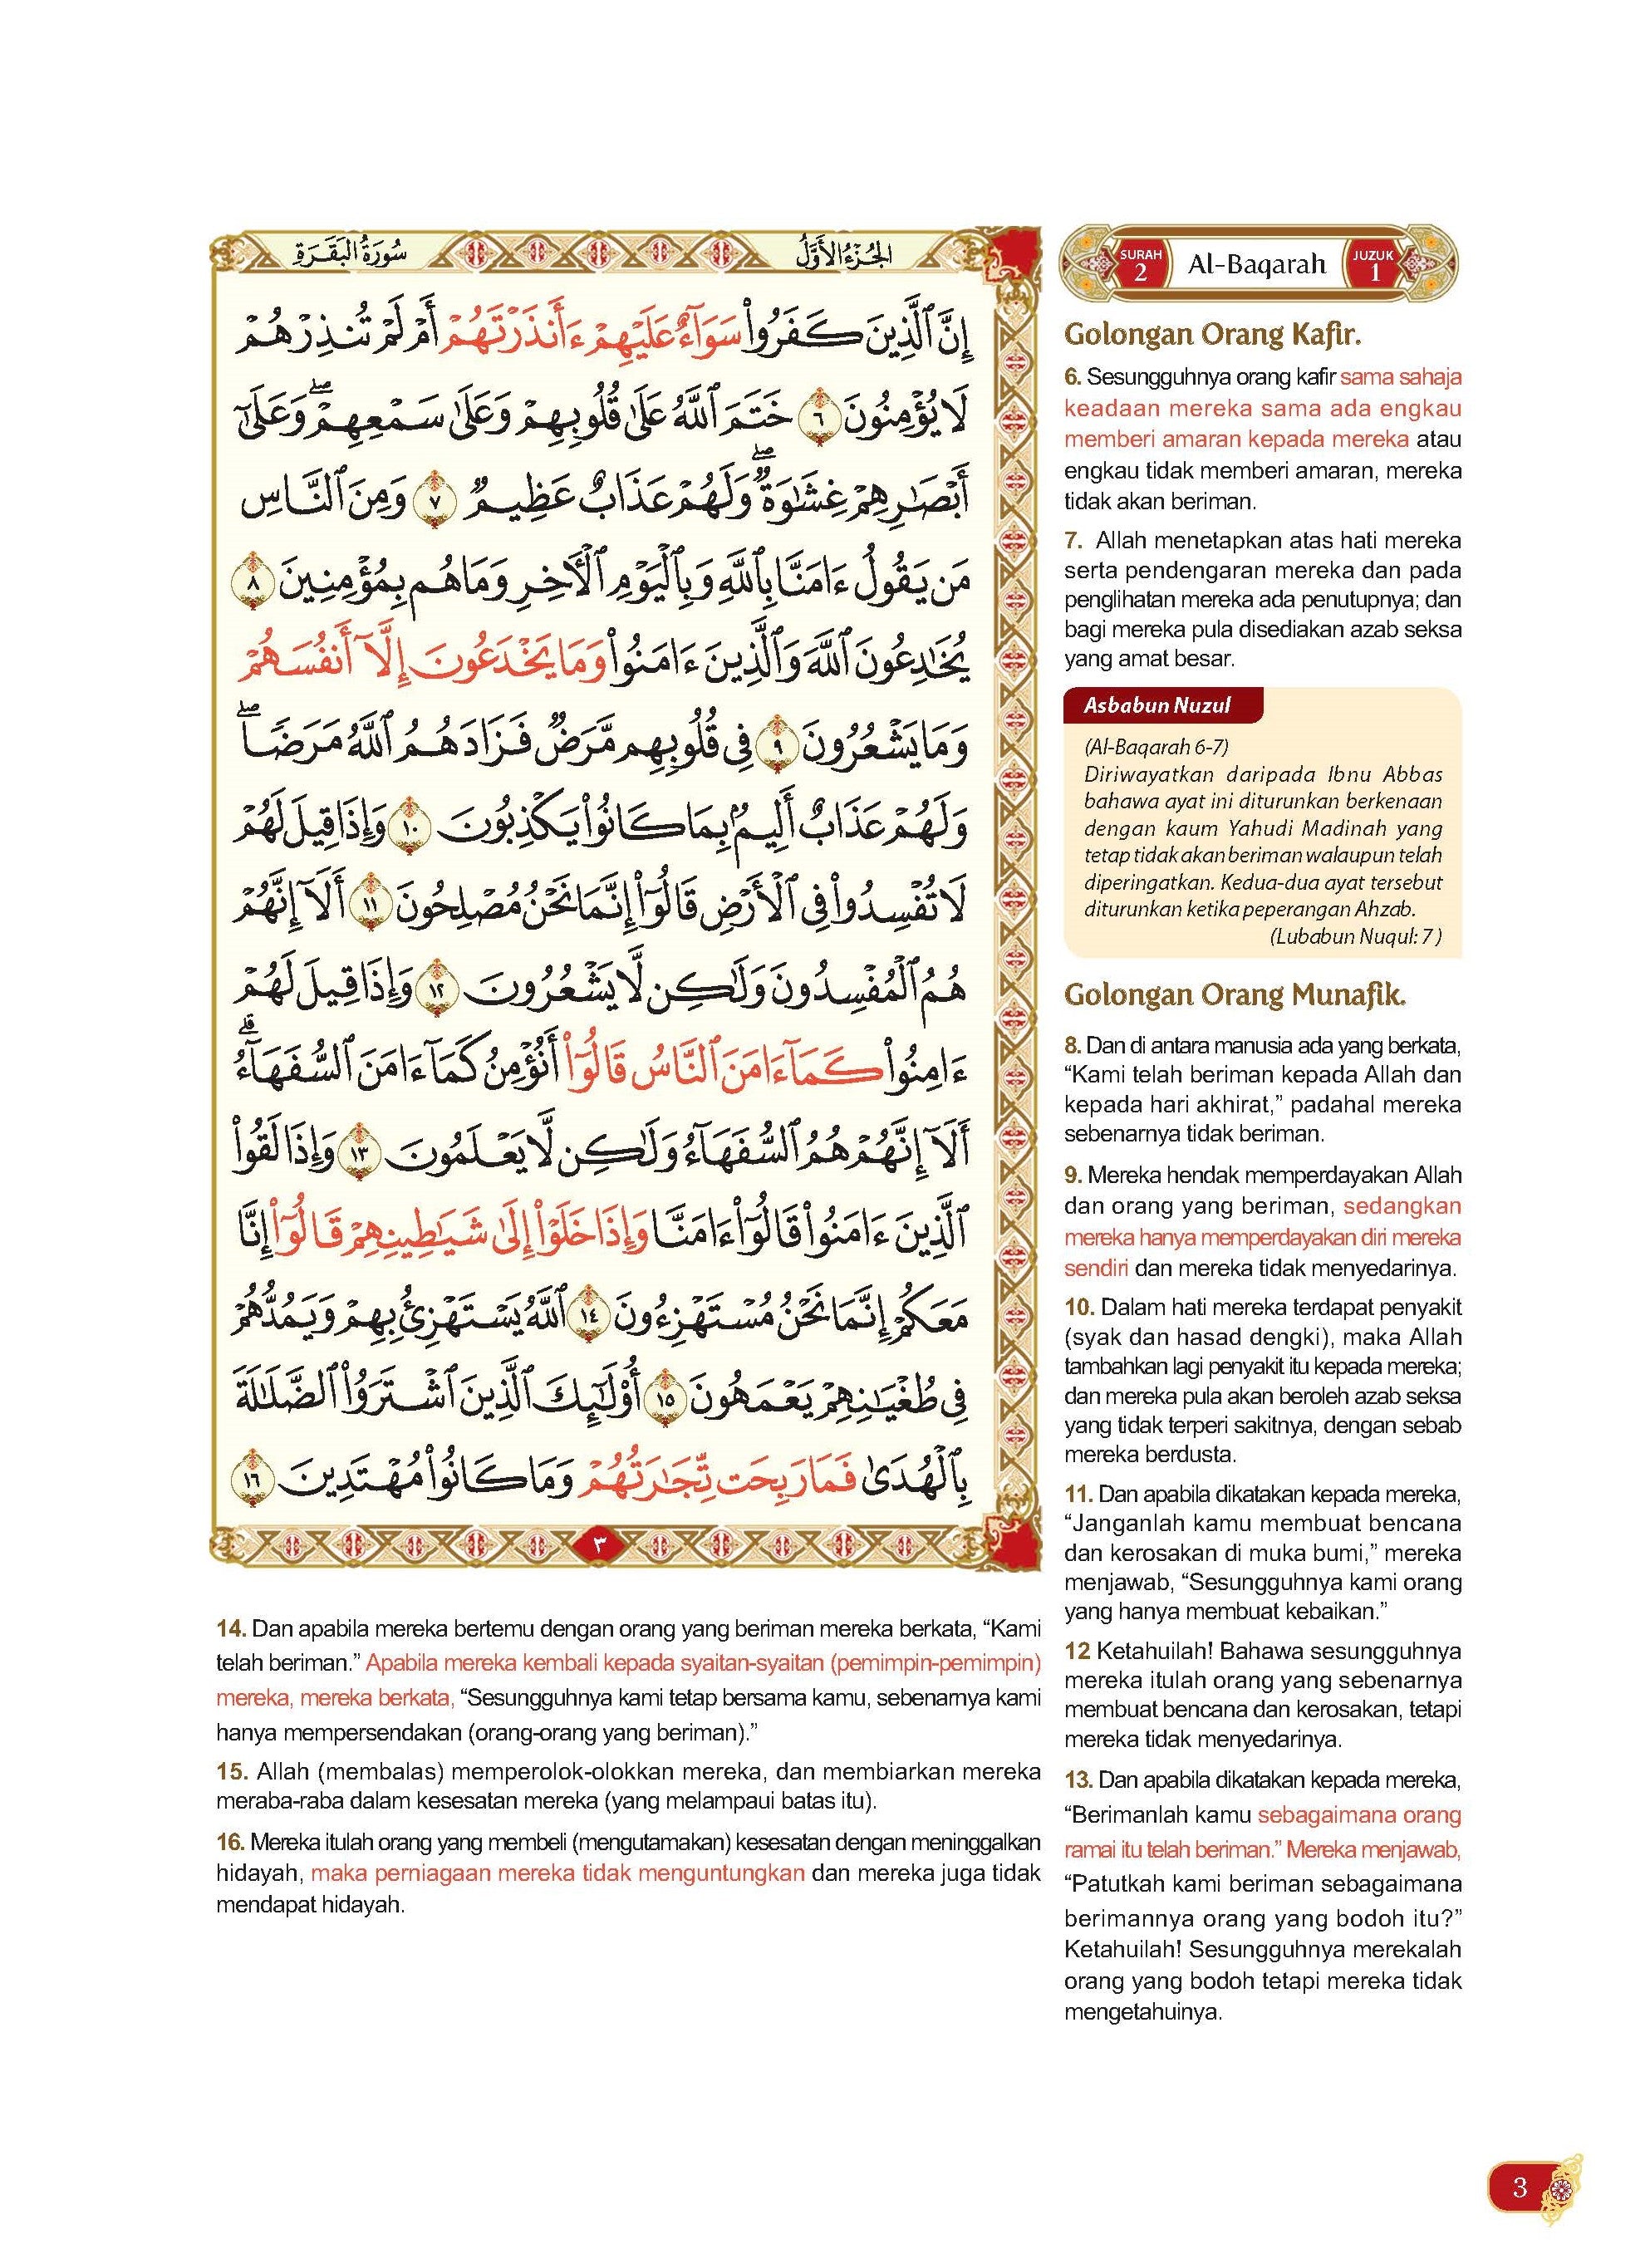 سُورَةُ البَقَرَةِ
الجُزْءُ الأَوَّلُ
إِنَّ ٱلَّذِينَ كَفَرُوا۟ سَوَآءٌ عَلَيْهِمْ ءَأَنذَرْتَهُمْ أَمْ لَمْ تُنذِرْهُمْ
لَا يُؤْمِنُونَ ٦ خَتَمَ ٱللَّهُ عَلَىٰ قُلُوبِهِمْ وَعَلَىٰ سَمْعِهِمْ ۖ وَعَلَىٰٓ
أَبْصَـٰرِهِمْ غِشَـٰوَةٌ ۖ وَلَهُمْ عَذَابٌ عَظِيمٌ ٧ وَمِنَ ٱلنَّاسِ
مَن يَقُولُ ءَامَنَّا بِٱللَّهِ وَبِٱلْيَوْمِ ٱلْـَٔاخِرِ وَمَا هُم بِمُؤْمِنِينَ ٨
يُخَـٰدِعُونَ ٱللَّهَ وَٱلَّذِينَ ءَامَنُوا۟ وَمَا يَخْدَعُونَ إِلَّآ أَنفُسَهُمْ
وَمَا يَشْعُرُونَ ٩ فِى قُلُوبِهِم مَّرَضٌ فَزَادَهُمُ ٱللَّهُ مَرَضًا ۖ
وَلَهُمْ عَذَابٌ أَلِيمٌۢ بِمَا كَانُوا۟ يَكْذِبُونَ ١٠ وَإِذَا قِيلَ لَهُمْ
لَا تُفْسِدُوا۟ فِى ٱلْأَرْضِ قَالُوٓا۟ إِنَّمَا نَحْنُ مُصْلِحُونَ ١١ أَلَآ إِنَّهُمْ
هُمُ ٱلْمُفْسِدُونَ وَلَـٰكِن لَّا يَشْعُرُونَ ١٢ وَإِذَا قِيلَ لَهُمْ
ءَامِنُوا۟ كَمَآ ءَامَنَ ٱلنَّاسُ قَالُوٓا۟ أَنُؤْمِنُ كَمَآ ءَامَنَ ٱلسُّفَهَآءُ ۗ
أَلَآ إِنَّهُمْ هُمُ ٱلسُّفَهَآءُ وَلَـٰكِن لَّا يَعْلَمُونَ ١٣ وَإِذَا لَقُوا۟
ٱلَّذِينَ ءَامَنُوا۟ قَالُوٓا۟ ءَامَنَّا وَإِذَا خَلَوْا۟ إِلَىٰ شَيَـٰطِينِهِمْ قَالُوٓا۟ إِنَّا
مَعَكُمْ إِنَّمَا نَحْنُ مُسْتَهْزِءُونَ ١٤ ٱللَّهُ يَسْتَهْزِئُ بِهِمْ وَيَمُدُّهُمْ
فِى طُغْيَـٰنِهِمْ يَعْمَهُونَ ١٥ أُو۟لَـٰٓئِكَ ٱلَّذِينَ ٱشْتَرَوُا۟ ٱلضَّلَـٰلَةَ
بِٱلْهُدَىٰ فَمَا رَبِحَت تِّجَـٰرَتُهُمْ وَمَا كَانُوا۟ مُهْتَدِينَ ١٦
٣
SURAH
2
Al-Baqarah
JUZUK
1
Golongan Orang Kafir.
6. Sesungguhnya orang kafir sama sahaja
keadaan mereka sama ada engkau
memberi amaran kepada mereka atau
engkau tidak memberi amaran, mereka
tidak akan beriman.
7. Allah menetapkan atas hati mereka
serta pendengaran mereka dan pada
penglihatan mereka ada penutupnya; dan
bagi mereka pula disediakan azab seksa
yang amat besar.
Asbabun Nuzul
(Al-Baqarah 6-7)
Diriwayatkan daripada Ibnu Abbas
bahawa ayat ini diturunkan berkenaan
dengan kaum Yahudi Madinah yang
tetap tidak akan beriman walaupun telah
diperingatkan. Kedua-dua ayat tersebut
diturunkan ketika peperangan Ahzab.
(Lubabun Nuqul: 7 )
Golongan Orang Munafik.
8. Dan di antara manusia ada yang berkata,
“Kami telah beriman kepada Allah dan
kepada hari akhirat,” padahal mereka
sebenarnya tidak beriman.
9. Mereka hendak memperdayakan Allah
dan orang yang beriman, sedangkan
mereka hanya memperdayakan diri mereka
sendiri dan mereka tidak menyedarinya.
10. Dalam hati mereka terdapat penyakit
(syak dan hasad dengki), maka Allah
tambahkan lagi penyakit itu kepada mereka;
dan mereka pula akan beroleh azab seksa
yang tidak terperi sakitnya, dengan sebab
mereka berdusta.
11. Dan apabila dikatakan kepada mereka,
“Janganlah kamu membuat bencana
dan kerosakan di muka bumi,” mereka
menjawab, “Sesungguhnya kami orang
yang hanya membuat kebaikan.”
12 Ketahuilah! Bahawa sesungguhnya
mereka itulah orang yang sebenarnya
membuat bencana dan kerosakan, tetapi
mereka tidak menyedarinya.
13. Dan apabila dikatakan kepada mereka,
“Berimanlah kamu sebagaimana orang
ramai itu telah beriman.” Mereka menjawab,
“Patutkah kami beriman sebagaimana
berimannya orang yang bodoh itu?”
Ketahuilah! Sesungguhnya merekalah
orang yang bodoh tetapi mereka tidak
mengetahuinya.
14. Dan apabila mereka bertemu dengan orang yang beriman mereka berkata, “Kami
telah beriman.” Apabila mereka kembali kepada syaitan-syaitan (pemimpin-pemimpin)
mereka, mereka berkata, “Sesungguhnya kami tetap bersama kamu, sebenarnya kami
hanya mempersendakan (orang-orang yang beriman).”
15. Allah (membalas) memperolok-olokkan mereka, dan membiarkan mereka
meraba-raba dalam kesesatan mereka (yang melampaui batas itu).
16. Mereka itulah orang yang membeli (mengutamakan) kesesatan dengan meninggalkan
hidayah, maka perniagaan mereka tidak menguntungkan dan mereka juga tidak
mendapat hidayah.
3